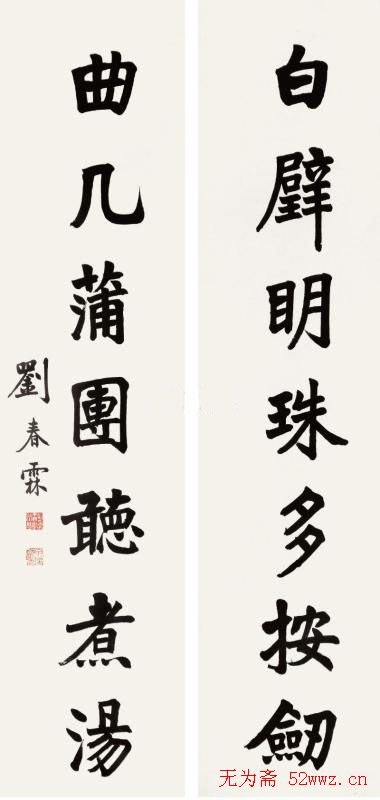 白璧明珠多按劒
曲几蒲團聽煮湯
劉春霖
无为斋 52wwz.cn